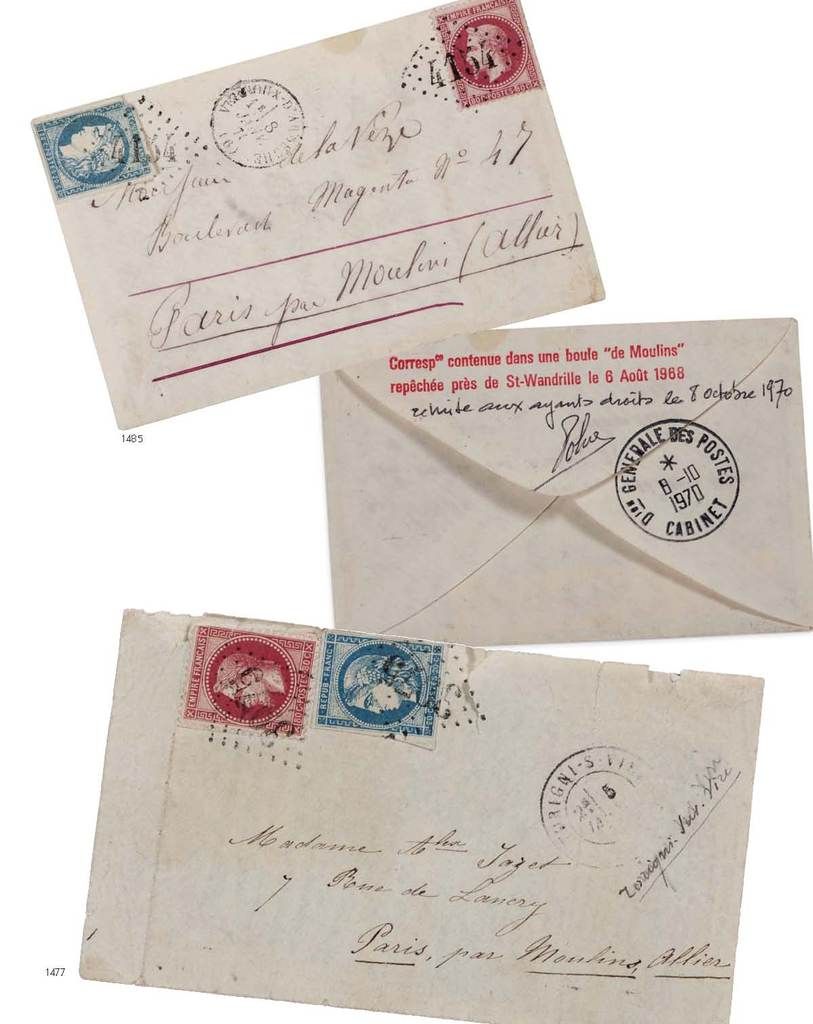 EMPIRE FRANÇAIS
POSTES 80 C
4154
4154
Monsieur de la Vèze
Boulevard Magenta No 47
Paris par Moulins (Allier)
1485
Correspce contenue dans une boule "de Moulins"
repêchée près de St-Wandrille le 6 Août 1968
remise aux ayants droits le 8 octobre 1970
Don GENERALE DES POSTES
8-10
1970
CABINET
EMPIRE FRANÇAIS
POSTES 80 C
REPUB. FRANC.
TORIGNI-S-VIRE
5
Torigni-sur-Vire
Madame Alex Jazet
7 Rue de Lancry
Paris, par Moulins, Allier
1477